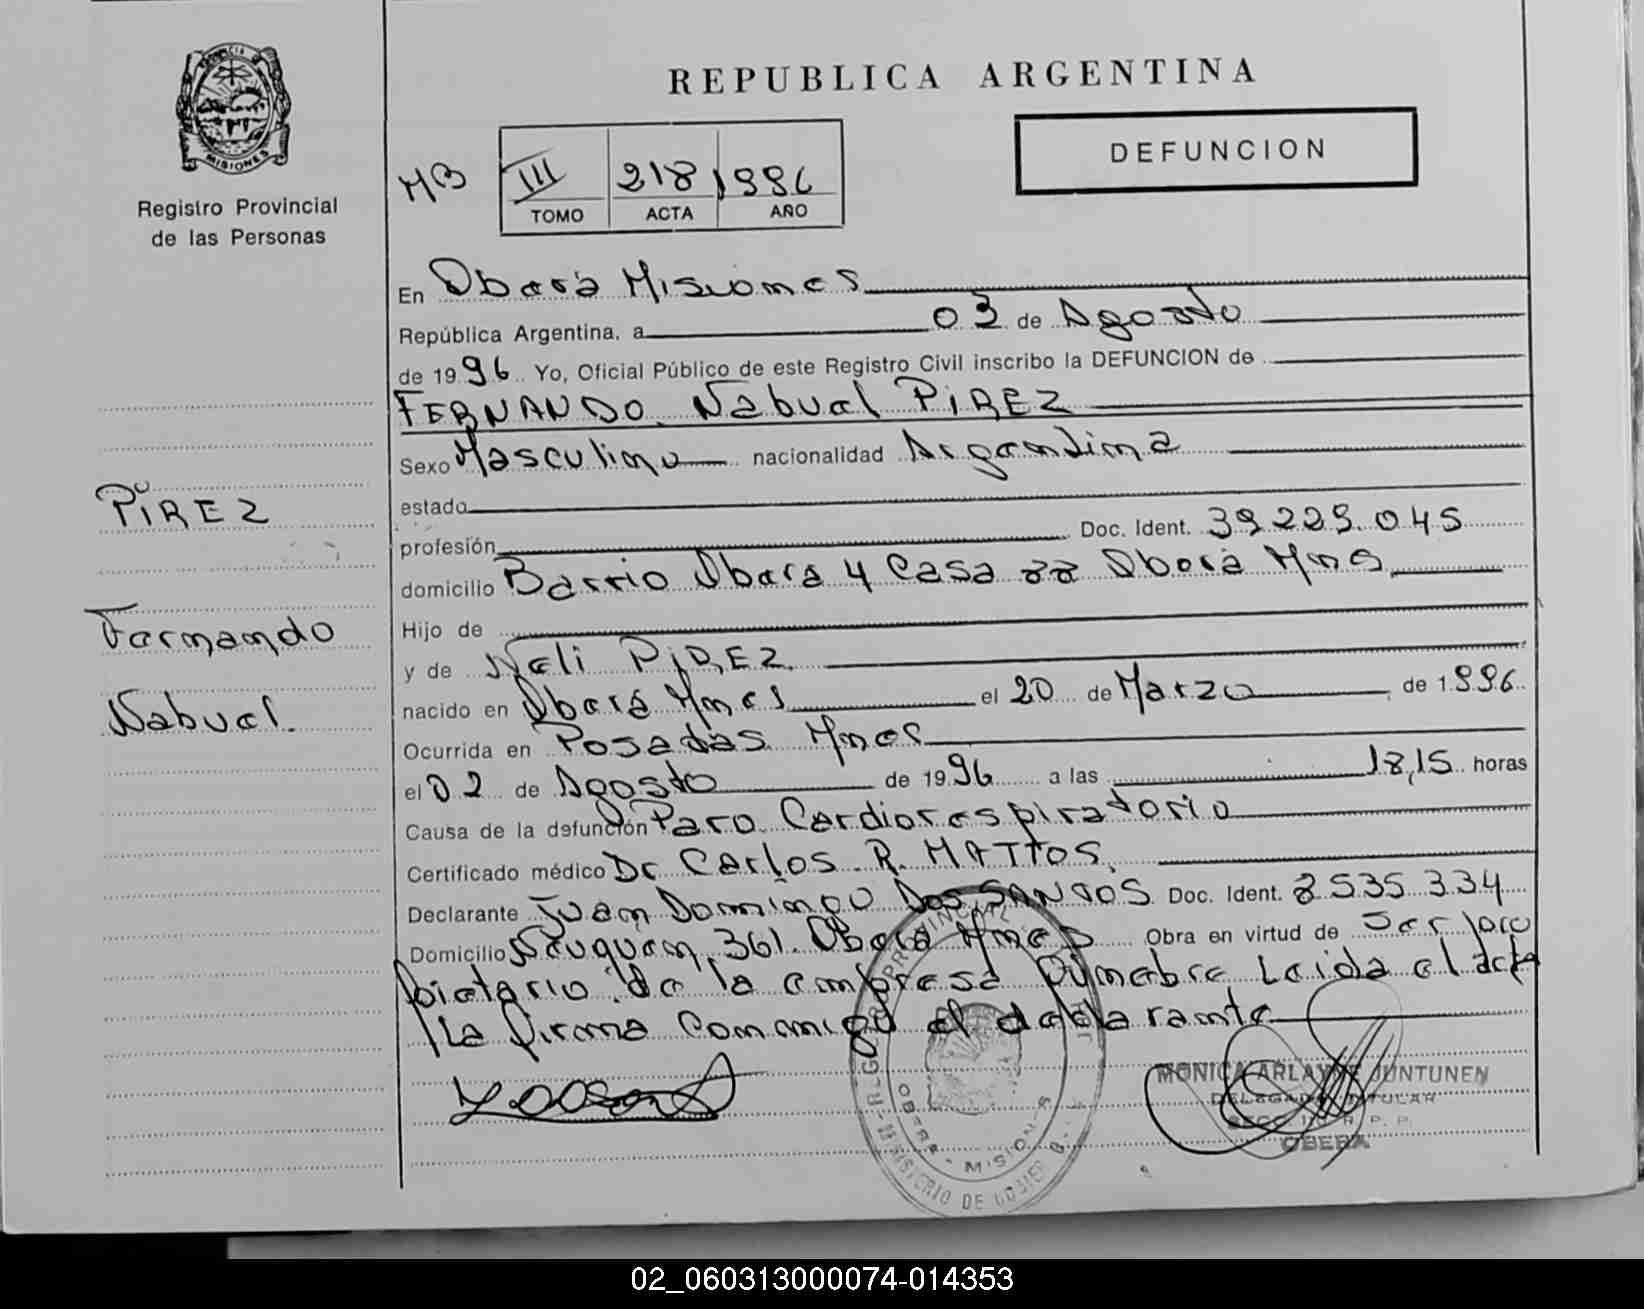 REPUBLICA ARGENTINA
PROVINCIA DE
MISIONES
Registro Provincial
de las Personas
DEFUNCION
MB III 218 1996
TOMO ACTA AÑO
En Oberá Misiones
República Argentina, a 03 de Agosto
de 1996 Yo, Oficial Público de este Registro Civil inscribo la DEFUNCION de
FERNANDO Nahuel PIREZ
Sexo Masculino nacionalidad Argentina
estado
profesión Doc. Ident. 39.229.045
domicilio Barrio Oberá 4 Casa 22 Oberá Mnes
Hijo de
y de Neli PIREZ
nacido en Oberá Mnes el 20 de Marzo de 1996
Ocurrida en Posadas Mnes
el 02 de Agosto de 1996 a las 18,15 horas
Causa de la defunción Paro Cardiorespiratorio
Certificado médico Dr Carlos R. MATTOS
Declarante Juan Domingo Dos SANTOS Doc. Ident. 8.535.334
Domicilio Neuquén 361 Oberá Mnes Obra en virtud de Ser pro
pietario de la empresa Fúnebre Leida el acta
La firma conmigo el declarante
PIREZ
Fernando
Nahuel.
MONICA ARLAYNE JUNTUNEN
DELEGADA TITULAR
R. P. P.
OBERA
REGISTRO PROVINCIAL
OBERA - MISIONES
MINISTERIO DE GOBIERNO
02_060313000074-014353